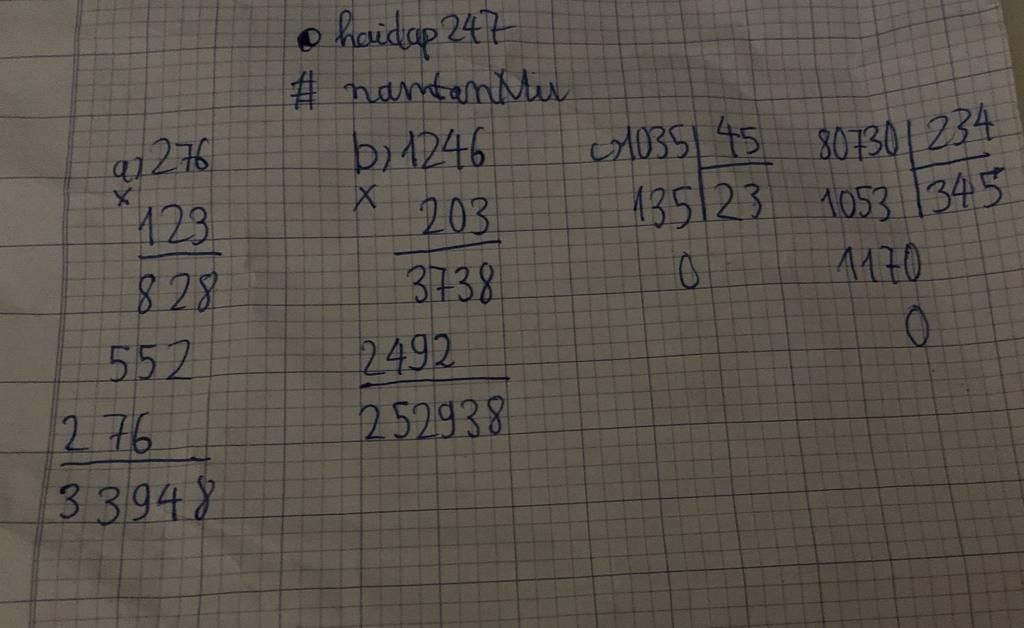 haidap247
# namtanMiu
a) 276
x
123
828
552
276
33948
b) 1246
x
203
3738
2492
252938
c) 1035 45
135 23
0
80730 234
1053 345
1170
0